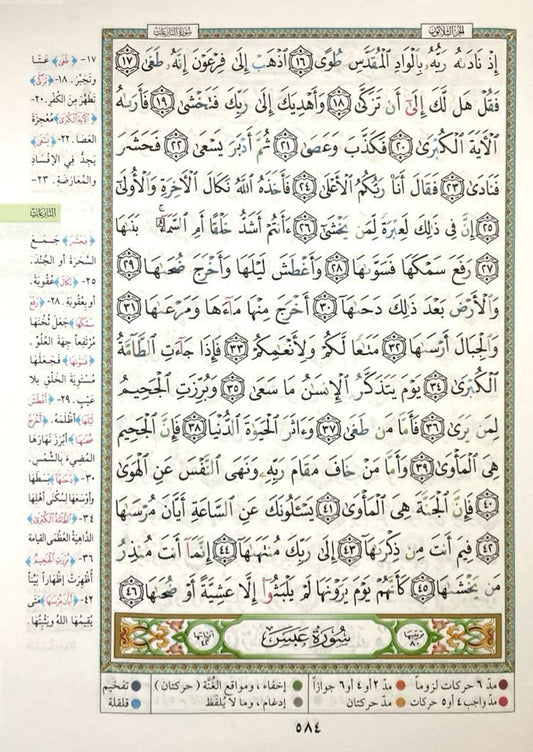 سورة النازعات
الجزء الثلاثون
إِذْ نَادَىٰهُ رَبُّهُۥ بِٱلْوَادِ ٱلْمُقَدَّسِ طُوًى ١٦ ٱذْهَبْ إِلَىٰ فِرْعَوْنَ إِنَّهُۥ طَغَىٰ ١٧
فَقُلْ هَل لَّكَ إِلَىٰٓ أَن تَزَكَّىٰ ١٨ وَأَهْدِيَكَ إِلَىٰ رَبِّكَ فَتَخْشَىٰ ١٩ فَأَرَىٰهُ
ٱلْءَايَةَ ٱلْكُبْرَىٰ ٢٠ فَكَذَّبَ وَعَصَىٰ ٢١ ثُمَّ أَدْبَرَ يَسْعَىٰ ٢٢ فَحَشَرَ
فَنَادَىٰ ٢٣ فَقَالَ أَنَا۠ رَبُّكُمُ ٱلْأَعْلَىٰ ٢٤ فَأَخَذَهُ ٱللَّهُ نَكَالَ ٱلْءَاخِرَةِ وَٱلْأُولَىٰٓ
٢٥ إِنَّ فِى ذَٰلِكَ لَعِبْرَةً لِّمَن يَخْشَىٰٓ ٢٦ ءَأَنتُمْ أَشَدُّ خَلْقًا أَمِ ٱلسَّمَآءُ ۚ بَنَىٰهَا
٢٧ رَفَعَ سَمْكَهَا فَسَوَّىٰهَا ٢٨ وَأَغْطَشَ لَيْلَهَا وَأَخْرَجَ ضُحَىٰهَا ٢٩
وَٱلْأَرْضَ بَعْدَ ذَٰلِكَ دَحَىٰهَآ ٣٠ أَخْرَجَ مِنْهَا مَآءَهَا وَمَرْعَىٰهَا ٣١
وَٱلْجِبَالَ أَرْسَىٰهَا ٣٢ مَتَٰعًا لَّكُمْ وَلِأَنْعَٰمِكُمْ ٣٣ فَإِذَا جَآءَتِ ٱلطَّآمَّةُ
ٱلْكُبْرَىٰ ٣٤ يَوْمَ يَتَذَكَّرُ ٱلْإِنسَٰنُ مَا سَعَىٰ ٣٥ وَبُرِّزَتِ ٱلْجَحِيمُ
لِمَن يَرَىٰ ٣٦ فَأَمَّا مَن طَغَىٰ ٣٧ وَءَاثَرَ ٱلْحَيَوٰةَ ٱلدُّنْيَا ٣٨ فَإِنَّ ٱلْجَحِيمَ
هِىَ ٱلْمَأْوَىٰ ٣٩ وَأَمَّا مَنْ خَافَ مَقَامَ رَبِّهِۦ وَنَهَى ٱلنَّفْسَ عَنِ ٱلْهَوَىٰ
٤٠ فَإِنَّ ٱلْجَنَّةَ هِىَ ٱلْمَأْوَىٰ ٤١ يَسْـَٔلُونَكَ عَنِ ٱلسَّاعَةِ أَيَّانَ مُرْسَىٰهَا
٤٢ فِيمَ أَنتَ مِن ذِكْرَىٰهَآ ٤٣ إِلَىٰ رَبِّكَ مُنتَهَىٰهَآ ٤٤ إِنَّمَآ أَنتَ مُنذِرُ
مَن يَخْشَىٰهَا ٤٥ كَأَنَّهُمْ يَوْمَ يَرَوْنَهَا لَمْ يَلْبَثُوٓا۟ إِلَّا عَشِيَّةً أَوْ ضُحَىٰهَا ٤٦
ترتيبها ٨٠ سُورَةُ عَبَسَ آياتها ٤٢
١٧- ﴿طَغَى﴾ عَتَا
وتَجَبَّرَ. ١٨- ﴿تَزَكَّى﴾
تَطَهَّرَ مِنَ الكُفْرِ. ٢٠-
﴿الْآيَةَ الْكُبْرَى﴾ مُعْجِزَةَ
العَصَا. ٢٢- ﴿يَسْعَى﴾
يَجِدُّ فِي الإفْسَادِ
والمُعَارَضَةِ. ٢٣-
النازعات
﴿فَحَشَرَ﴾ جَمَعَ
السَّحَرَةَ أو الجُنْدَ.
٢٥- ﴿نَكَالَ﴾ عُقُوبَةَ.
أو بِعُقُوبَةِ. ٢٨- ﴿رَفَعَ
سَمْكَهَا﴾ جَعَلَ ثُخْنَهَا
مُرْتَفِعاً جِهَةَ العُلُوِّ.
﴿فَسَوَّاهَا﴾ فَجَعَلَهَا
مُسْتَوِيَةَ الخَلْقِ بِلا
عَيْبٍ. ٢٩- ﴿أَغْطَشَ
لَيْلَهَا﴾ أَظْلَمَهُ. ﴿أَخْرَجَ
ضُحَاهَا﴾ أَبْرَزَ نَهَارَهَا
المُضِيءَ بِالشَّمْسِ.
٣٠- ﴿دَحَاهَا﴾ بَسَطَهَا
وأَوْسَعَهَا لِسُكْنَى أَهْلِهَا
٣٤- ﴿الطَّامَّةُ الْكُبْرَى﴾
الدَّاهِيَةُ العُظْمَى القيامة
٣٦- ﴿بُرِّزَتِ الْجَحِيمُ﴾
أُظْهِرَتْ إظْهَاراً بَيِّناً
٤٢- ﴿أَيَّانَ مُرْسَاهَا﴾ مَتَى
يُقِيمُهَا اللهُ ويُثْبِتُهَا.
مدّ ٦ حركات لزوماً مدّ ٢ أو ٤ أو ٦ جوازاً إخفاء، ومواقع الغُنَّة (حركتان) تفخيم
مدّ واجب ٤ أو ٥ حركات مدّ حركتان إدغام، وما لا يُلفَظ قلقلة
٥٨٤